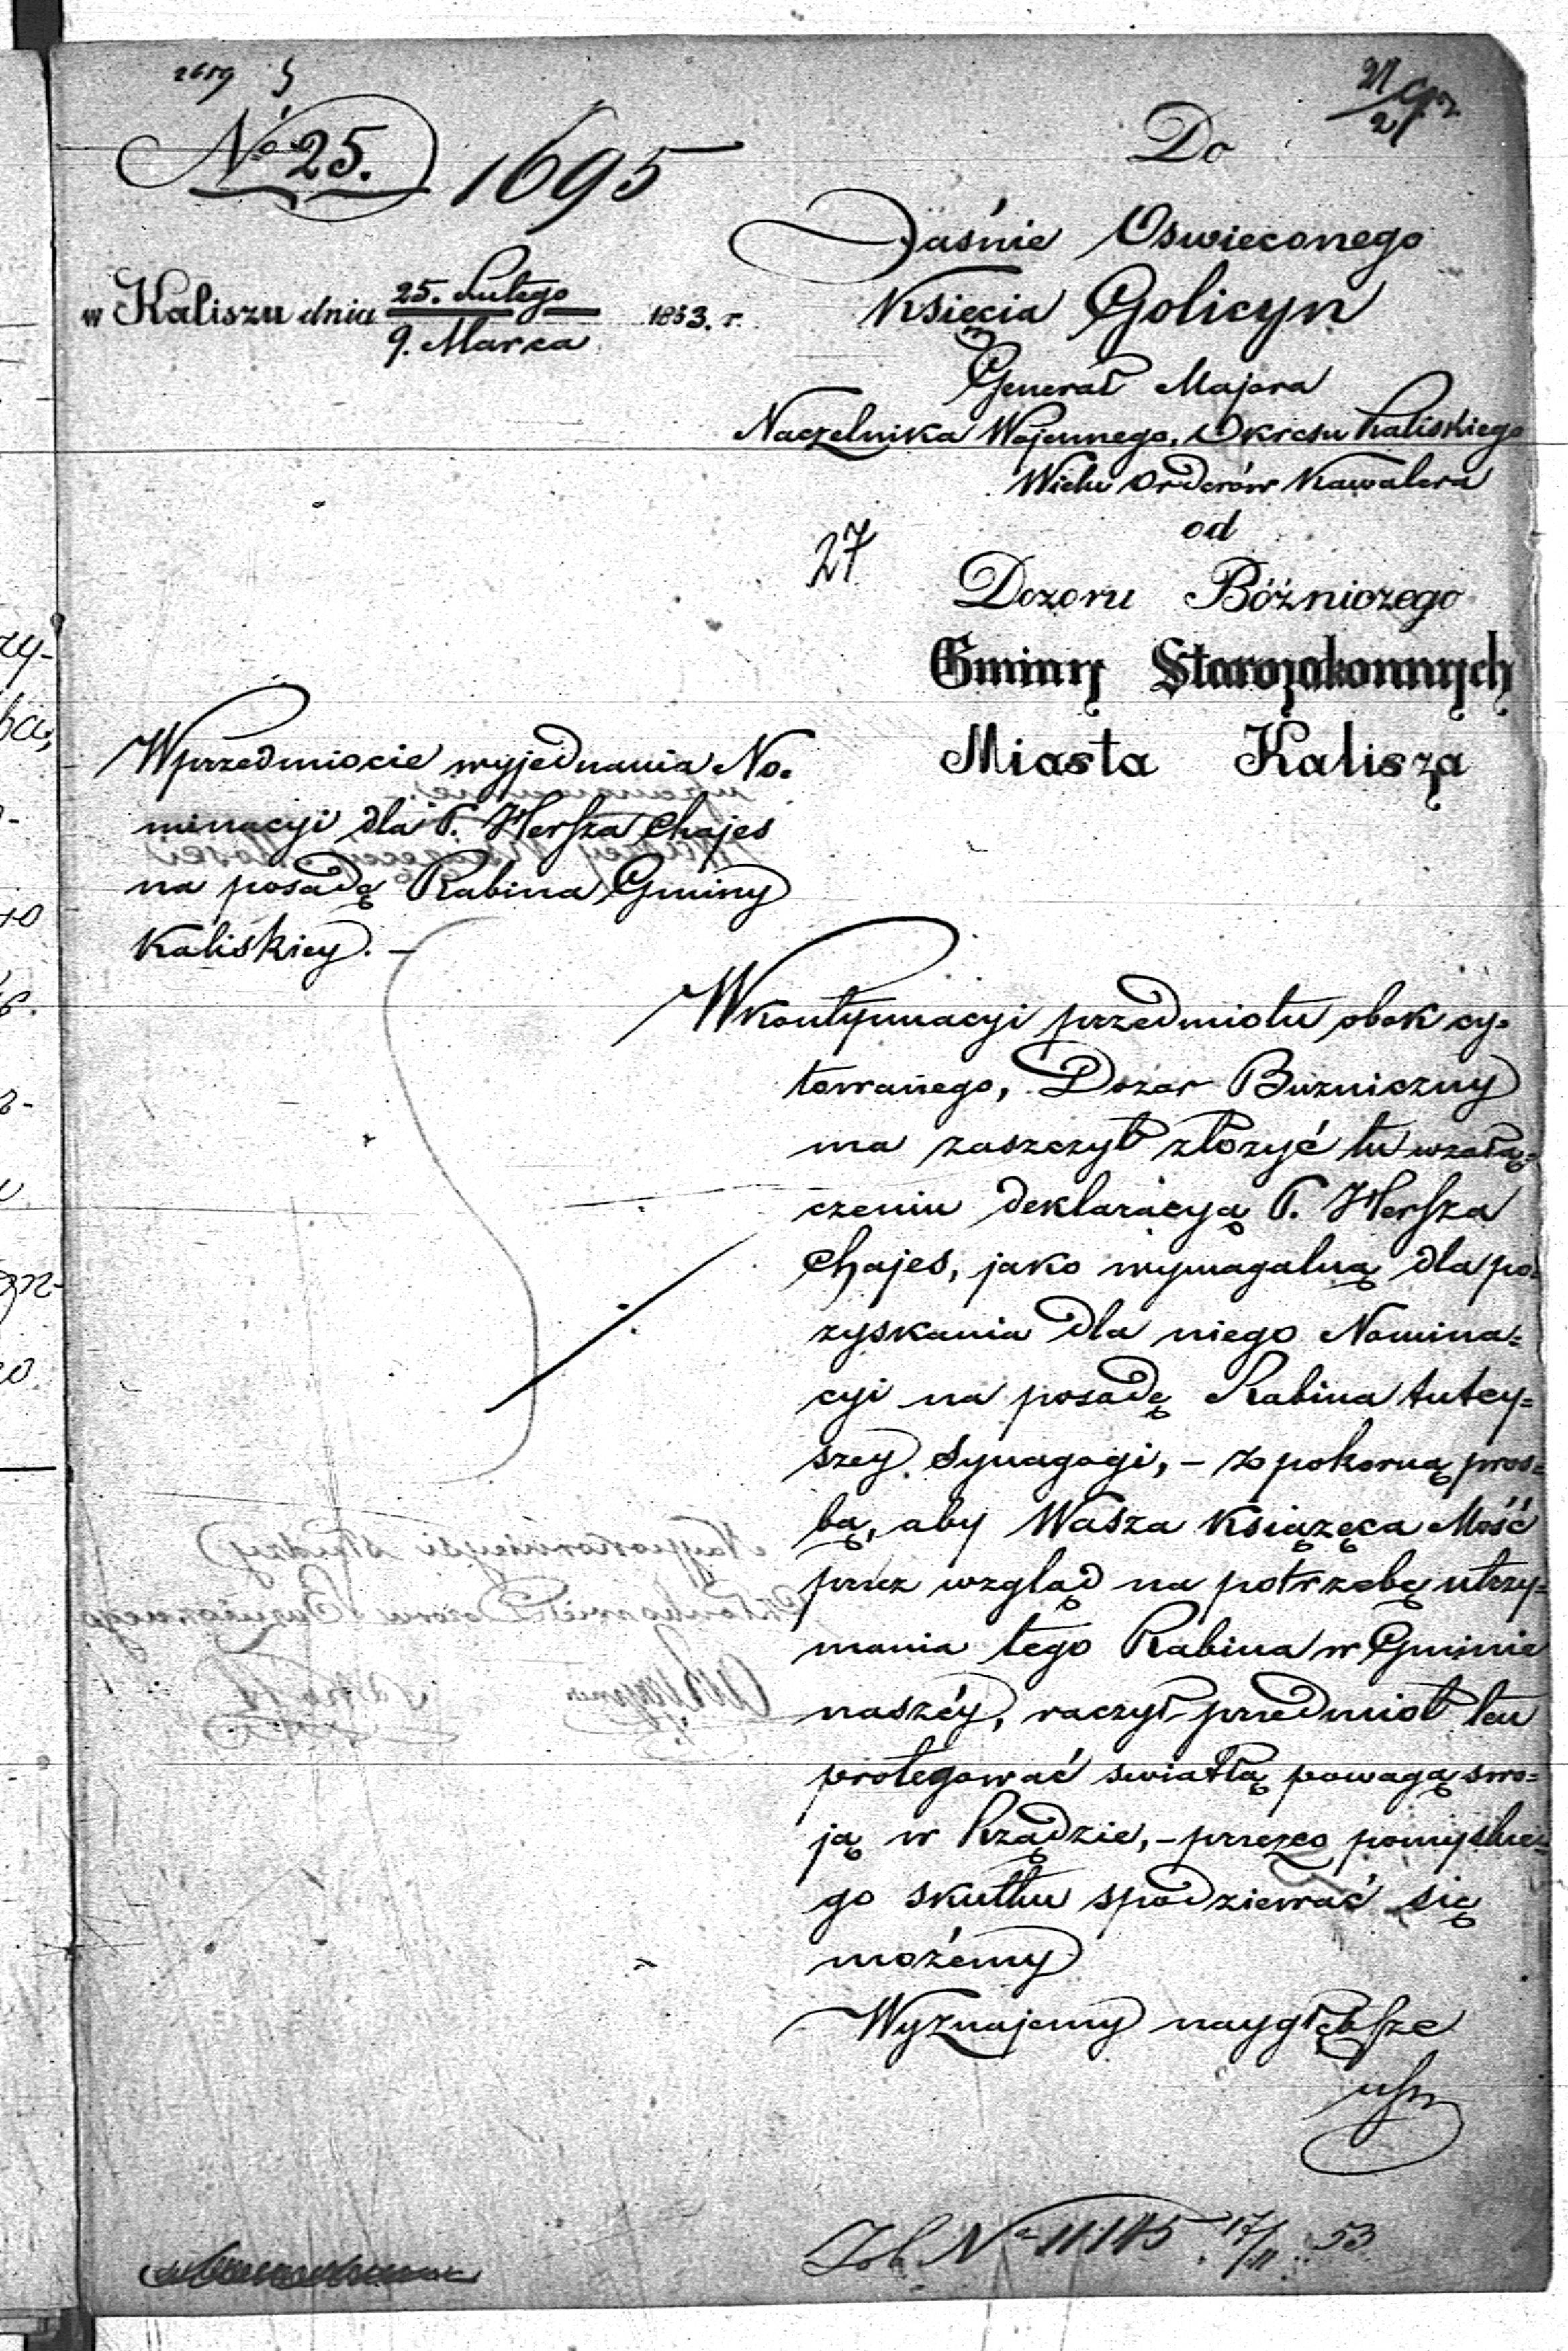 2659
№ 25. 1695
w Kaliszu dnia 25. Lutego / 9. Marca 1853. r.
Do
Jaśnie Oswieconego
Księcia Golicyn
Generał Majora
Naczelnika Wojennego, Okresu Kaliskiego
Wielu Orderów Kawalera
od
27
Dozoru Bóżniczego
Gminy Starozakonnych
Miasta Kalisza
Wprzedmiocie wyjednania No-
minacyi dla P. Hersza Chajes
na posadę Rabina Gminy
Kaliskiey. –
Wkontynuacyi przedmiotu obok cy-
towanego, Dozor Buzniczny
ma zaszczyt złozyć tu wzałą-
czeniu deklaracyą P. Hersza
Chajes, jako wymagalną dla po-
zyskania dla niego Nomina-
cyi na posadę Rabina tutey-
szey Synagogi, – z pokorną pros-
bą, aby Wasza Książęca Mość
przez wzgląd na potrzebę utrzy-
mania tego Rabina w Gminie
naszéy, raczył przedmiot ten
protegować swiatłą powagą swo-
ją w Rządzie, – przezco pomyslne-
go skutku spodziewać się
możemy
Wyznajemy naygłębsze
usza
№ 11145 17/11 53